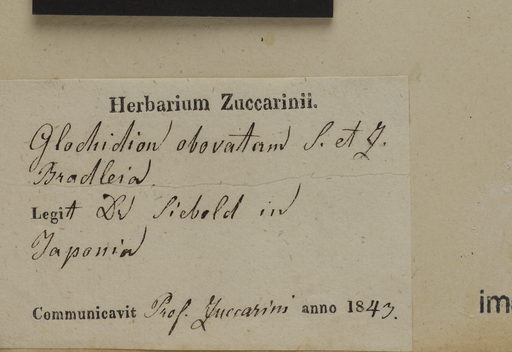 Herbarium Zuccarinii.
Glochidion obovatum S. et Z.
Bradleia.
Legit Dr Siebold in
Japonia
Communicavit Prof. Zuccarini anno 1843.
im